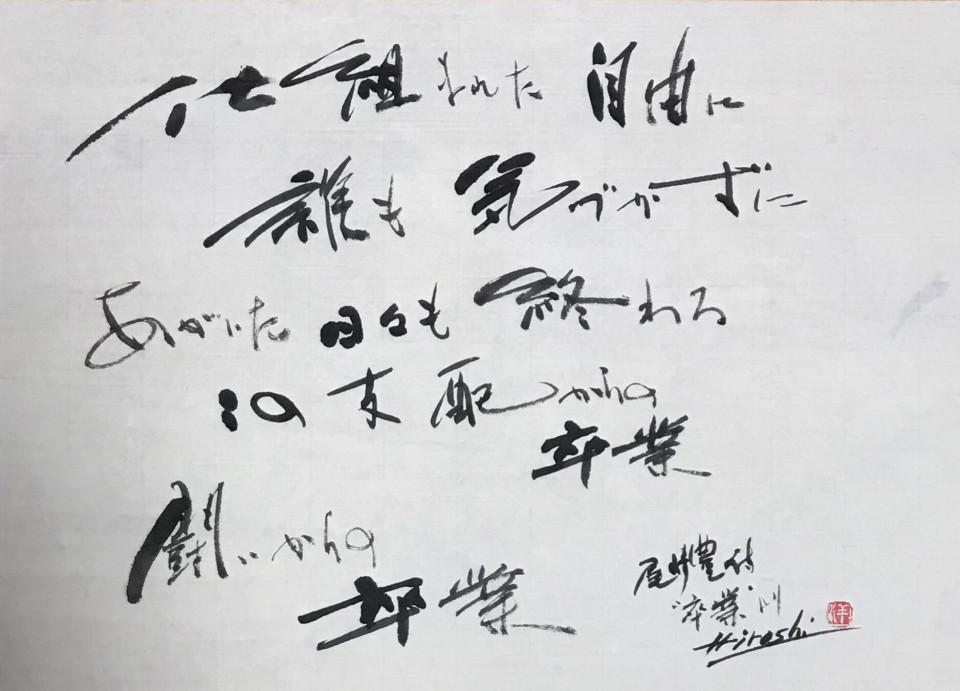 仕組まれた自由に
誰も気づかずに
あがいた日々も終わる
この支配からの
卒業
闘いからの
卒業
尾崎豊詩
"卒業"ﾖﾘ
Hiroshi
洋